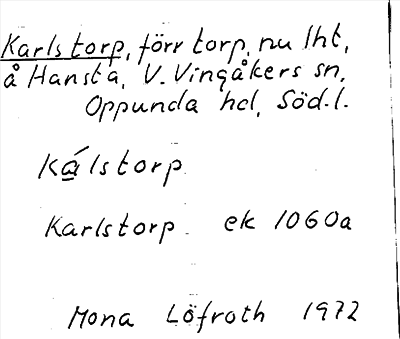 Karlstorp, förr torp, nu lht,
å Hansta, V. Vingåkers sn,
Oppunda hd, Söd.l.
Ká̲lstorp
Karlstorp. ek 1060a
Mona Löfroth 1972